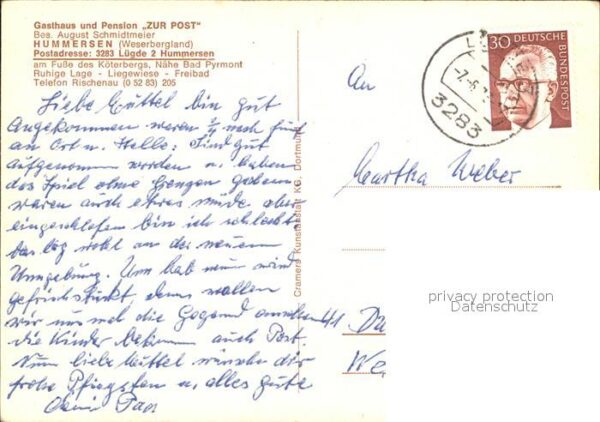 Gasthaus und Pension „ZUR POST"
Bes. August Schmidtmeier
HUMMERSEN (Weserbergland)
Postadresse: 3283 Lügde 2 Hummersen
am Fuße des Köterbergs, Nähe Bad Pyrmont
Ruhige Lage - Liegewiese - Freibad
Telefon Rischenau (0 52 83) 205
Liebe Müttel bin gut
angekommen waren nach fünf
an Ort u. Stelle: Sind gut
aufgenommen worden u. haben
das Spiel ohne Grenzen gesehen
waren auch etwas müde aber
eingeschlafen bin ich schlecht
das lag wohl an der neuen
Umgebung. Nun wird
gefrühstückt, dann wollen
wir uns mal die Gegend ansehen
die Kinder bekommen auch Post.
Nun liebe Müttel wünsche dir
frohe Pfingsten u. alles gute
dein
Cramers Kunstanstalt KG, Dortmund
30
DEUTSCHE
BUNDESPOST
3283
An
Martha Weber
41
We
privacy protection
Datenschutz